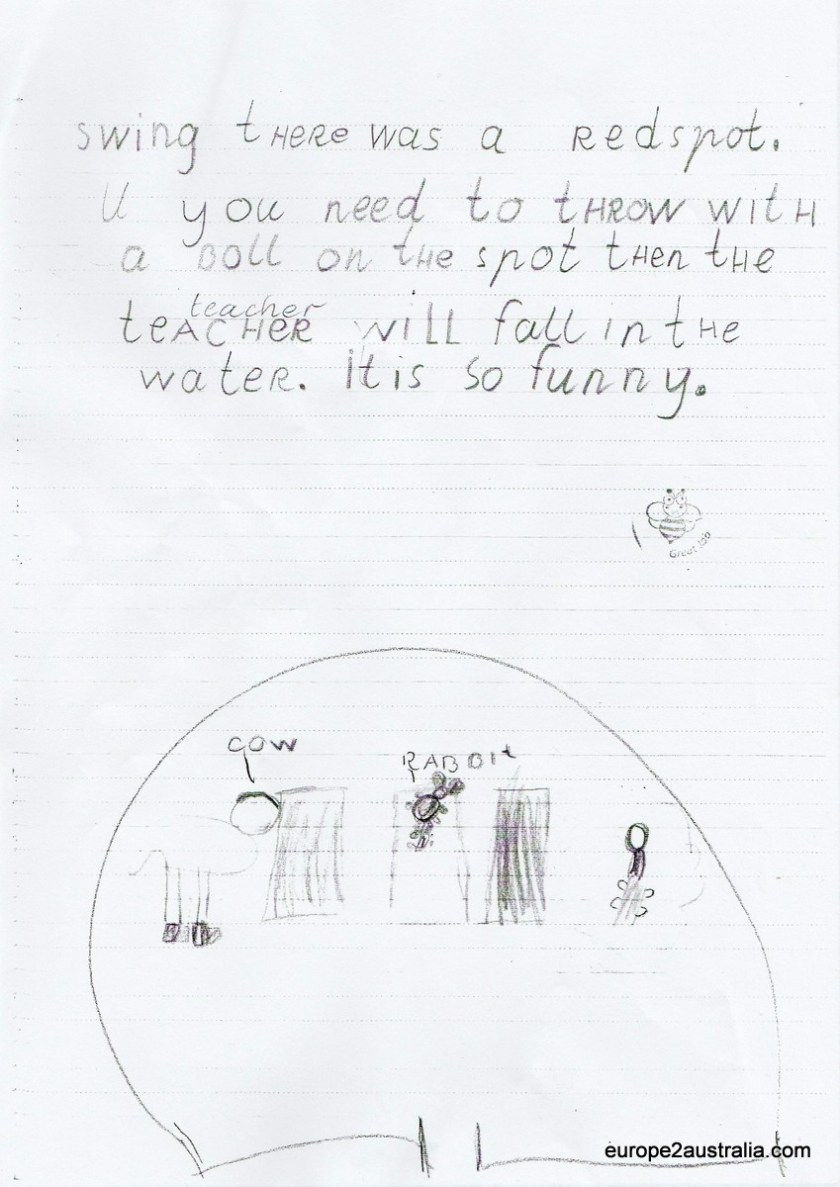 swing tHERe was a Redspot.
U you need to tHROW WITH
a boll on tHe spot tHen tHe
teacher
teACHeR will fall in tHe
wateR. it is so funny.
Great Job
COW
RABBIt
europe2australia.com